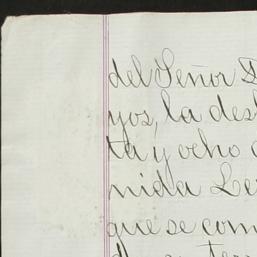 del Señor D
yos, la des
ta y ocho
nida Le
que se com